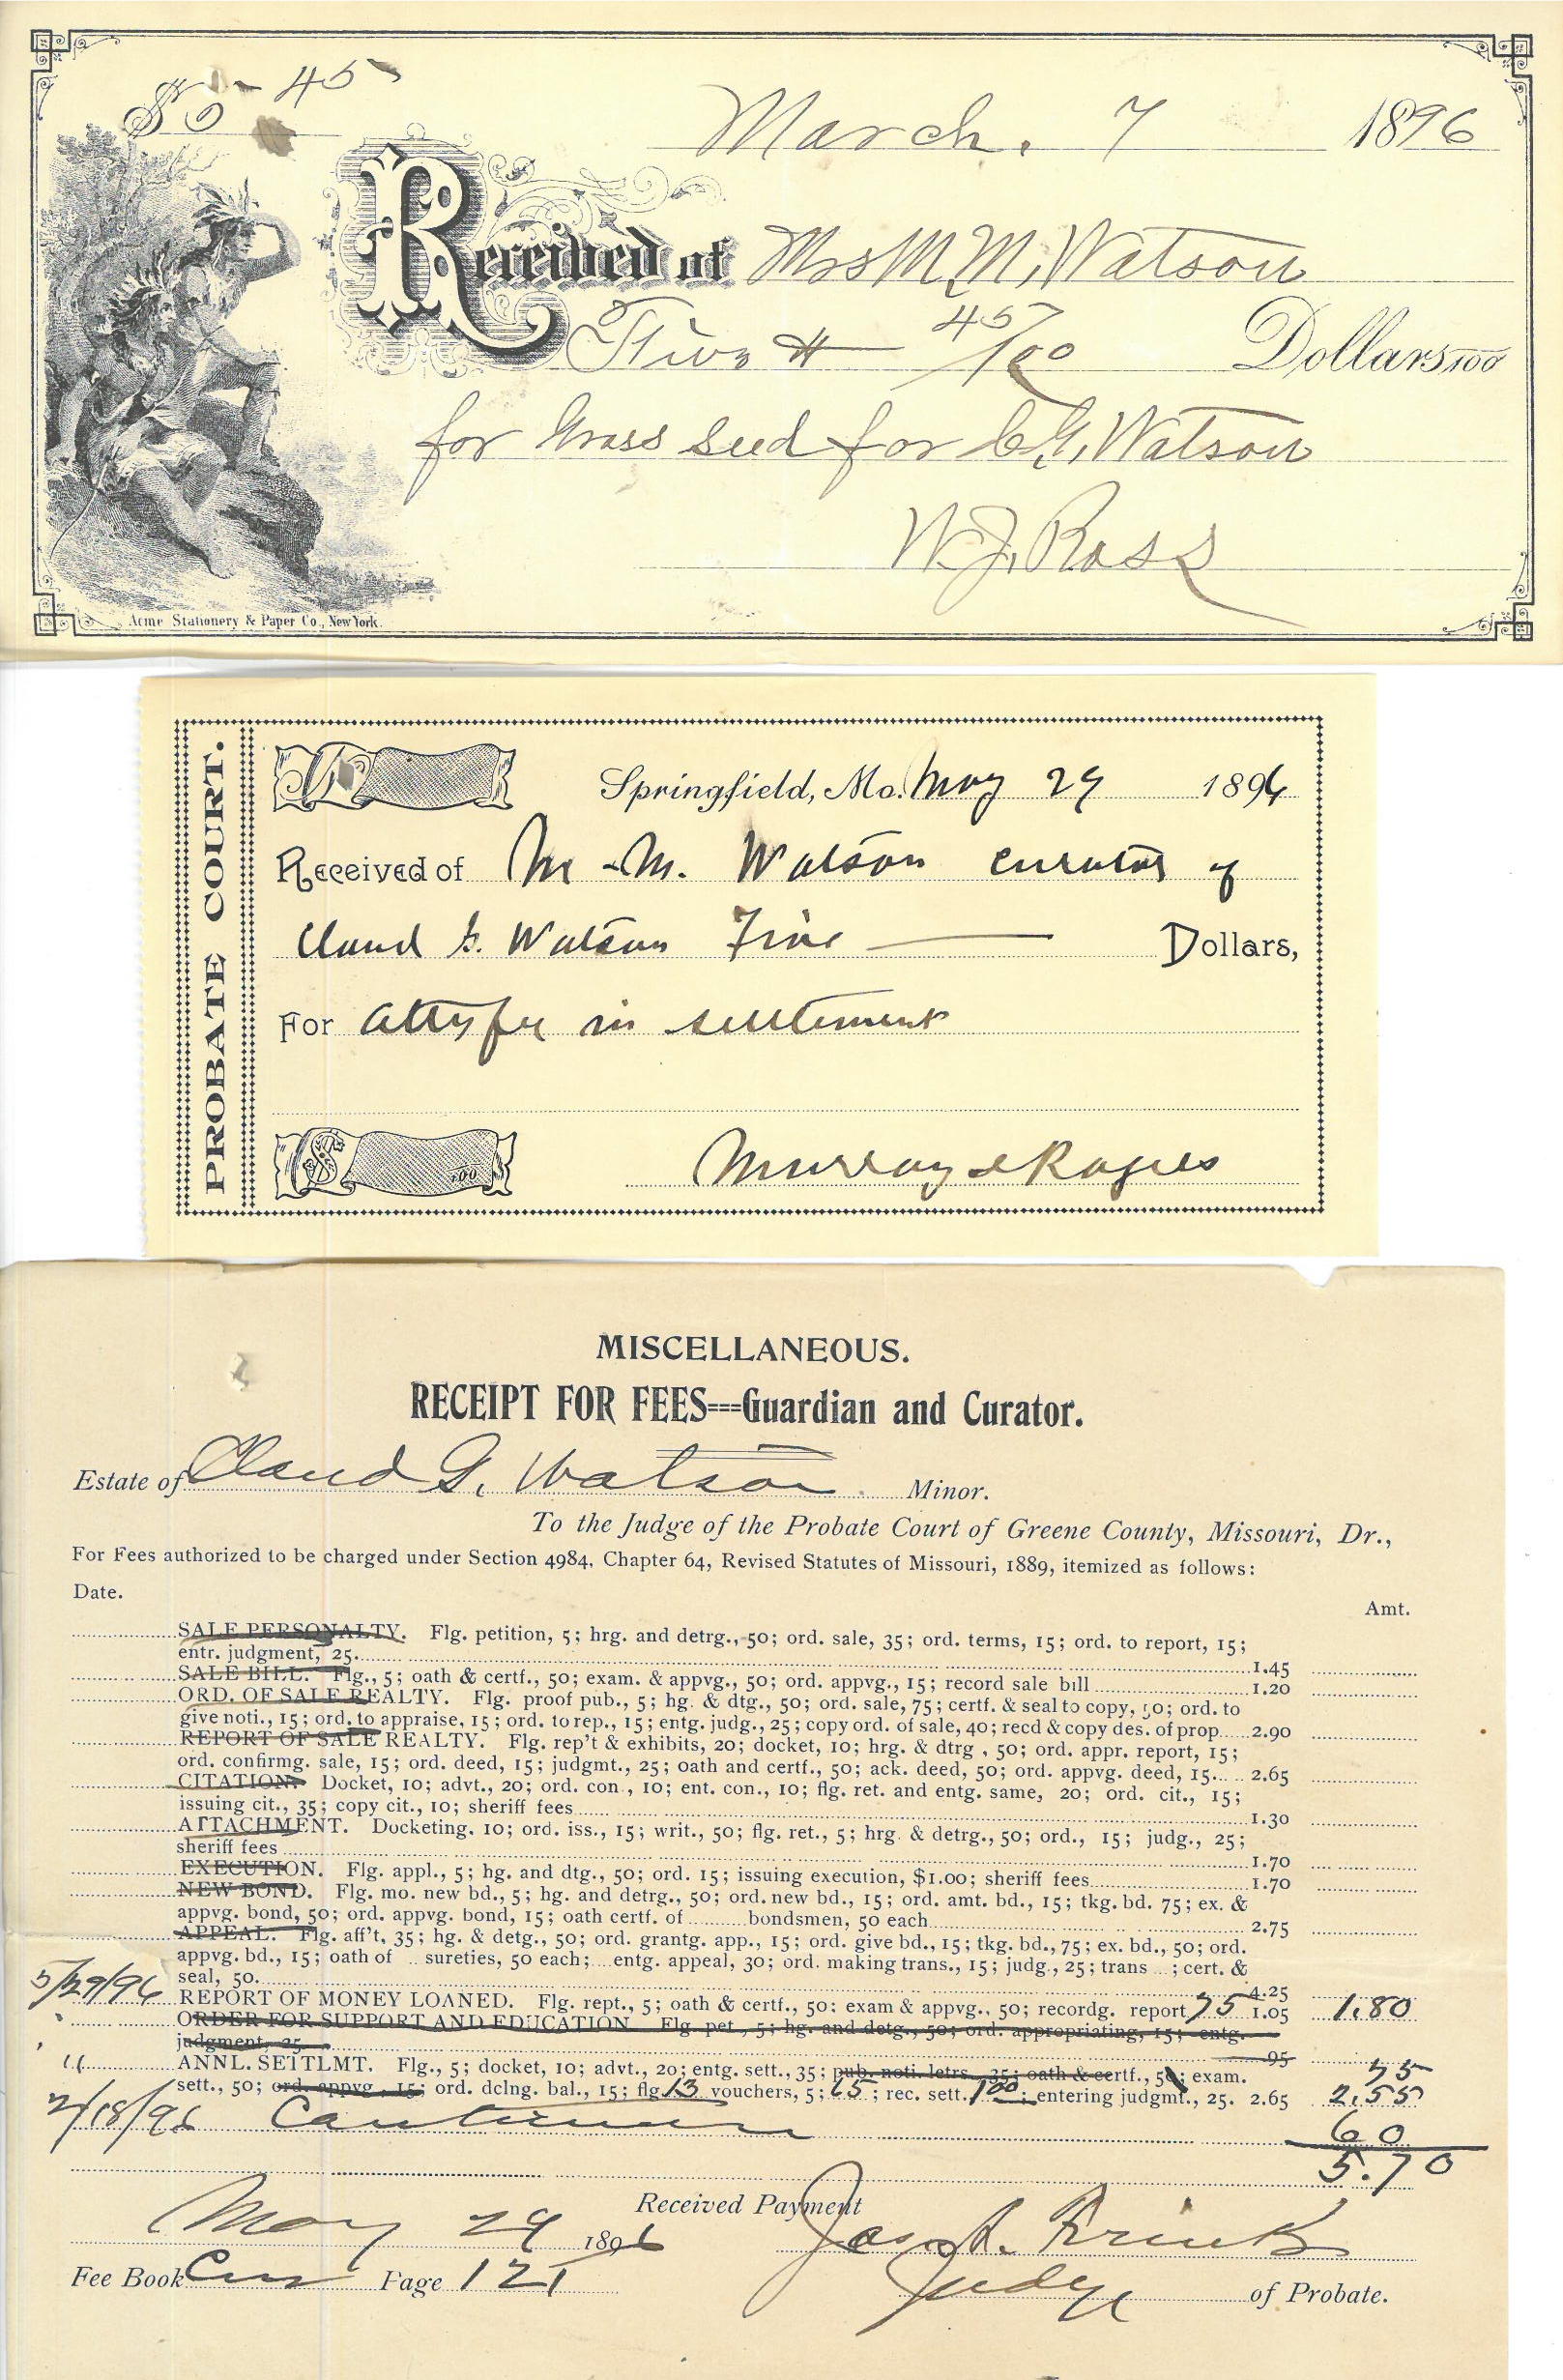 $5-45
March. 7 1896
Received of Mrs M. M. Watson
Five # 45/100 Dollars 100
for Grass seed for C.G. Watson
W. J. Ross
Acme Stationery & Paper Co., New York.
PROBATE COURT.
Springfield, Mo. May 29 1896
Received of M. M. Watson curator of
Claud G. Watson Five Dollars,
For atty fee in settlement
$ 100
Murray & Rogers
MISCELLANEOUS.
RECEIPT FOR FEES===Guardian and Curator.
Estate of Claud G. Watson Minor.
To the Judge of the Probate Court of Greene County, Missouri, Dr.,
For Fees authorized to be charged under Section 4984, Chapter 64, Revised Statutes of Missouri, 1889, itemized as follows:
Date.
Amt.
SALE PERSONALTY. Flg. petition, 5; hrg. and detrg., 50; ord. sale, 35; ord. terms, 15; ord. to report, 15;
entr. judgment, 25. 1.45
SALE BILL. Flg., 5; oath & certf., 50; exam. & appvg., 50; ord. appvg., 15; record sale bill 1.20
ORD. OF SALE REALTY. Flg. proof pub., 5; hg. & dtg., 50; ord. sale, 75; certf. & seal to copy, 50; ord. to
give noti., 15; ord. to appraise, 15; ord. to rep., 15; entg. judg., 25; copy ord. of sale, 40; recd & copy des. of prop. 2.90
REPORT OF SALE REALTY. Flg. rep't & exhibits, 20; docket, 10; hrg. & dtrg., 50; ord. appr. report, 15;
ord. confirmg. sale, 15; ord. deed, 15; judgmt., 25; oath and certf., 50; ack. deed, 50; ord. appvg. deed, 15. 2.65
CITATION. Docket, 10; advt., 20; ord. con., 10; ent. con., 10; flg. ret. and entg. same, 20; ord. cit., 15;
issuing cit., 35; copy cit., 10; sheriff fees 1.30
ATTACHMENT. Docketing, 10; ord. iss., 15; writ., 50; flg. ret., 5; hrg. & detrg., 50; ord., 15; judg., 25;
sheriff fees 1.70
EXECUTION. Flg. appl., 5; hg. and dtg., 50; ord. 15; issuing execution, $1.00; sheriff fees 1.70
NEW BOND. Flg. mo. new bd., 5; hg. and detrg., 50; ord. new bd., 15; ord. amt. bd., 15; tkg. bd. 75; ex. &
appvg. bond, 50; ord. appvg. bond, 15; oath certf. of bondsmen, 50 each 2.75
APPEAL. Flg. aff't, 35; hg. & detg., 50; ord. grantg. app., 15; ord. give bd., 15; tkg. bd., 75; ex. bd., 50; ord.
appvg. bd., 15; oath of sureties, 50 each; entg. appeal, 30; ord. making trans., 15; judg., 25; trans ; cert. &
seal, 50. 4.25
5/29/96 REPORT OF MONEY LOANED. Flg. rept., 5; oath & certf., 50; exam & appvg., 50; recordg. report 75 1.05 1.80
ORDER FOR SUPPORT AND EDUCATION Flg pet, 5; hg. and detg., 50; ord. appropriating, 15; entg.
judgment, 25 95
" ANNL. SETTLMT. Flg., 5; docket, 10; advt., 20; entg. sett., 35; pub. noti. letrs., 35; oath & certf., 50; exam. 75
sett., 50; ord. appvg., 15; ord. dclng. bal., 15; flg 13 vouchers, 5; 65; rec. sett. 1.00; entering judgmt., 25. 2.65 2.55
2/18/96 60
5.70
Received Payment
May 29 1896 Jas. R.
Fee Book Cur Page 121 Judge of Probate.